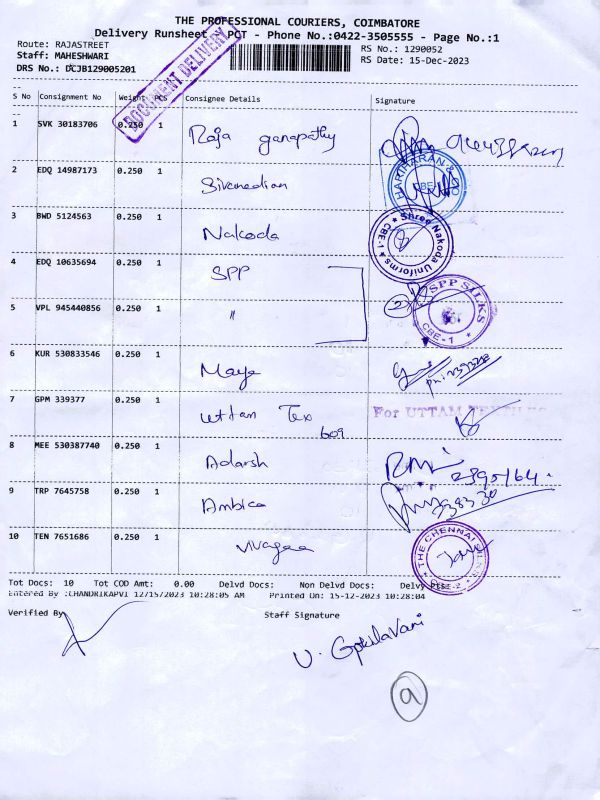 THE PROFESSIONAL COURIERS, COIMBATORE
Delivery Runsheet - PCT - Phone No.:0422-3505555 - Page No.:1
Route: RAJASTREET
RS No.: 1290052
Staff: MAHESHWARI
RS Date: 15-Dec-2023
DRS No.: DCJB129005201
DOCUMENT DELIVERY
S No Consignment No Weight PCS Consignee Details Signature
1 SVK 30183706 0.250 1 Raja ganapathy
2 EDQ 14987173 0.250 1
HARIHARAN & CO CBE-1
3 BWD 5124563 0.250 1 Nakoda
★ Shree Nakoda Uniforms ★ CBE-1
4 EDQ 10635694 0.250 1 SPP
5 VPL 945440856 0.250 1 "
SPP SILKS ★ CBE-1 ★
6 KUR 530833546 0.250 1 Maya
7 GPM 339377 0.250 1 Uttam Tex
609
For UTTAM
8 MEE 530387740 0.250 1 Adarsh
9 TRP 7645758 0.250 1 Ambica
10 TEN 7651686 0.250 1
★ THE CHENNAI
Tot Docs: 10 Tot COD Amt: 0.00 Delvd Docs: Non Delvd Docs:
Entered By :CHANDRIKAPVI 12/15/2023 10:28:05 AM Printed On: 15-12-2023 10:28:04
Verified By Staff Signature
U. GokilaVani
9